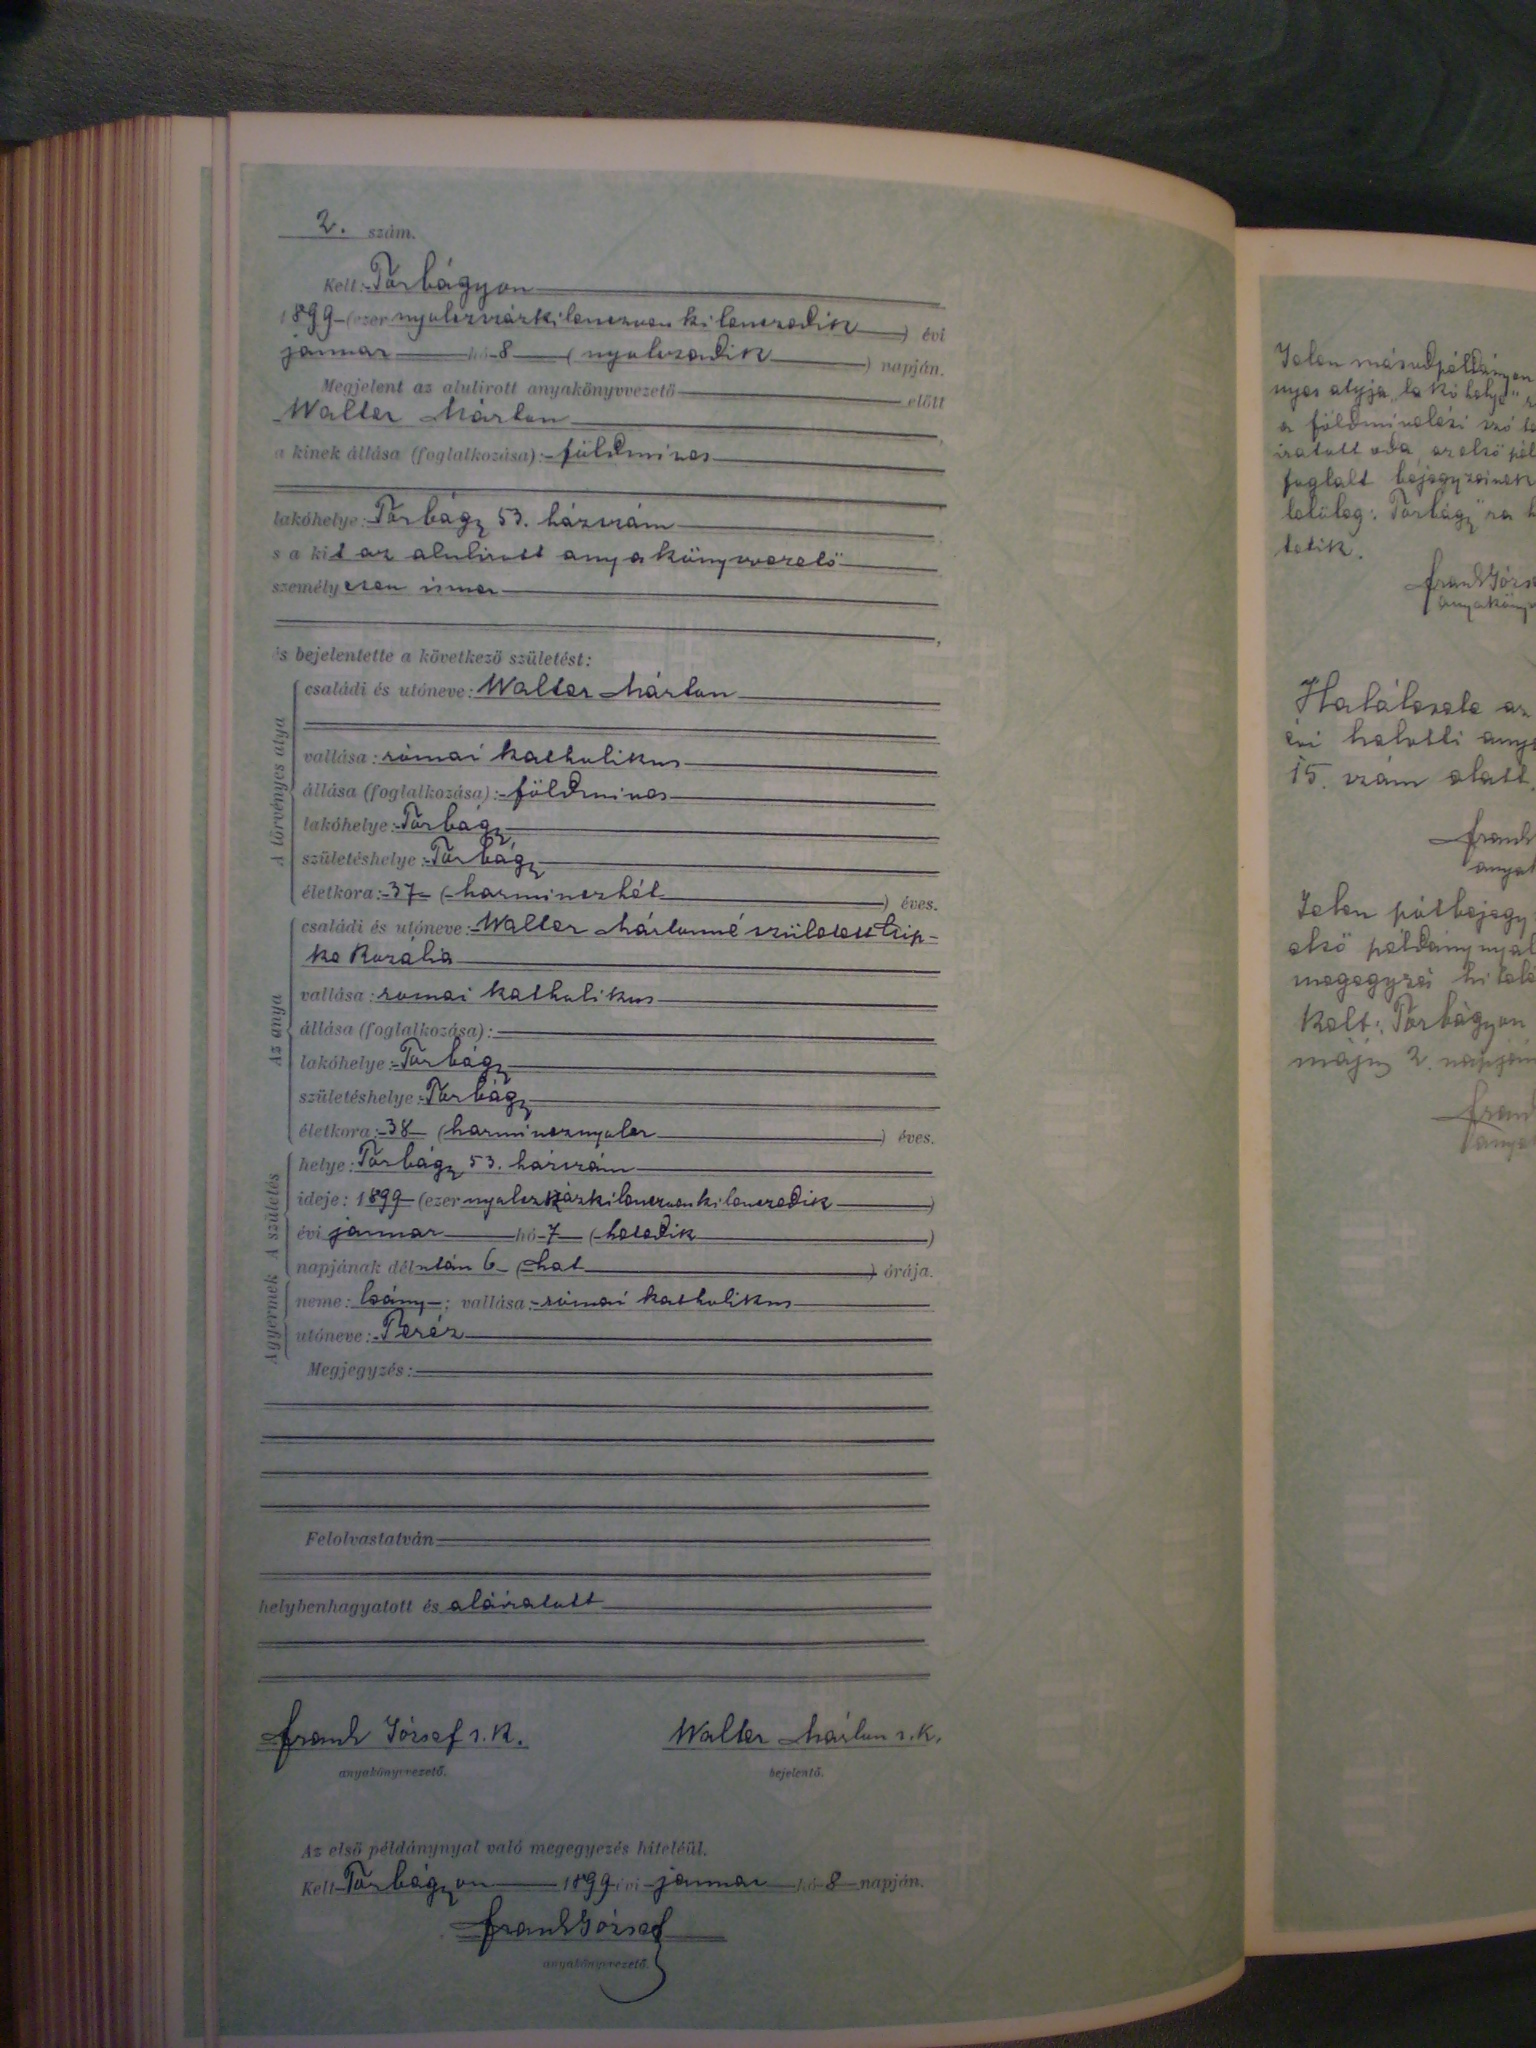 2. szám.
Kelt: Torbágyon
1899 (ezer nyolczszázkilenczvenkilenczedik) évi
január hó 8 (nyolczadik) napján.
Megjelent az alulirott anyakönyvvezető előtt
Walter Márton,
a kinek állása (foglalkozása): földmives
lakóhelye: Torbágy 53. házszám,
s a kit az alulirott anyakönyvvezető
személyesen ismer
,
és bejelentette a következő születést:
A törvényes atya
családi és utóneve: Walter Márton
vallása: római katholikus
állása (foglalkozása): földmives
lakóhelye: Torbágy
születéshelye: Torbágy,
életkora: 37 (harminczhét) éves.
Az anya
családi és utóneve: Walter Mártonné született
ke Rozália
vallása: romai katholikus
állása (foglalkozása):
lakóhelye: Torbágy
születéshelye: Torbágy
életkora: 38 (harmincznyolcz) éves.
A születés
helye: Torbágy 53. házszám
ideje: 1899 (ezer nyolczszázkilenczvenkilenczedik)
évi január hó 7 (hetedik)
napjának délután 6 (hat) órája.
A gyermek
neme: leány; vallása: római katholikus
utóneve: Teréz
Megjegyzés:
Felolvastatván
helybenhagyatott és aláiratott
Frank József s. k.
Walter Márton s. k.
anyakönyvvezető.
bejelentő.
Az első példánynyal való megegyezés hiteléül.
Kelt Torbágyon 1899 évi január hó 8 napján.
Frank József
anyakönyvvezető.
Jelen másodpéldányon
nyes atyja "lakóhelye"
a földmivelési szó
iratott oda, az első
foglalt bejegyzésnek
lelőleg: "Torbágy" ra
tetik.
Frank
Halálesete az
évi halotti
15. szám alatt.
Frank
Jelen pótbejegy
első példánynyal
megegyzés
Kelt: Torbágyon
május 2. napján
Frank